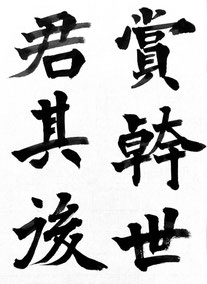 賞幹世
君其後